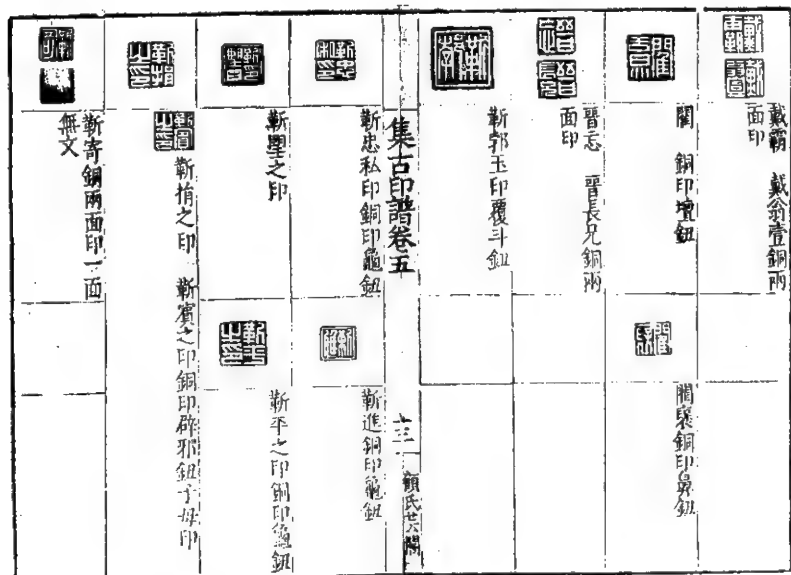 戴霸 戴翁壹銅兩
面印
閻 銅印壇鈕
閻褒銅印鼻鈕
晉忘 晉長兄銅兩
面印
靳郭玉印覆斗鈕
集古印譜卷五
十三
顧氏芸閣
靳忠私印銅印龜鈕
靳進銅印龜鈕
靳壐之印
靳平之印銅印龜鈕
靳㨈之印 靳賓之印銅印辟邪鈕子母印
靳寄銅兩面印一面
無文